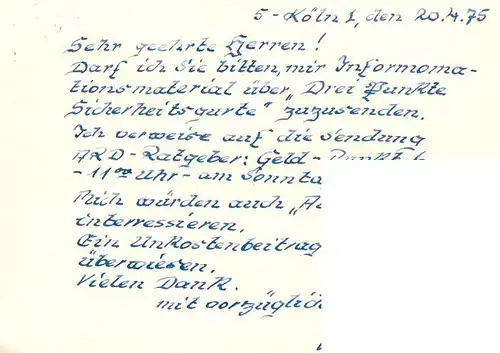 5 - Köln 1, den 20.4.75
Sehr geehrte Herren!
Darf ich Sie bitten, mir Informoma-
tionsmaterial über „Drei Punkte
Sicherheitsgurte“ zuzusenden.
Ich verweise auf die Sendung
ARD-Ratgeber: Geld -
- 11⁰⁰ Uhr - am
Mich würden auch
interressieren.
Ein Unkostenbeitrag
überwiesen.
Vielen Dank.
mit